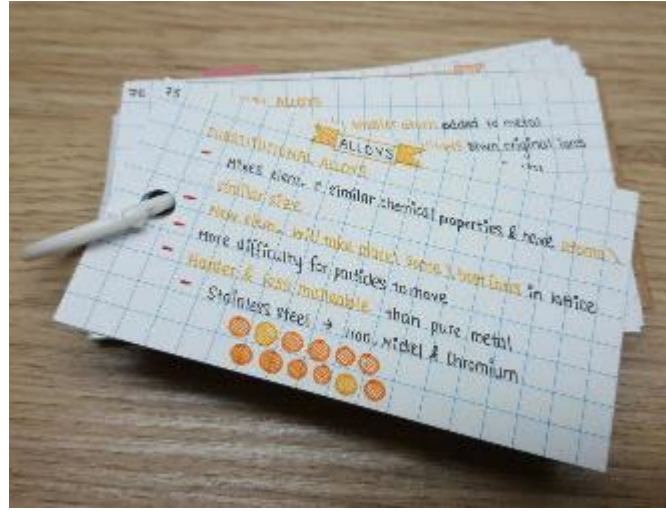 75
ALLOYS
smaller atoms added to metal
ALLOYS
down original ions
SUBSTITUTIONAL ALLOYS
- Mixes elem. c similar chemical properties & have atoms
similar size
- New elem. will take place in lattice
- More difficulty for particles to move
- Harder & less malleable than pure metal
- Stainless steel → iron, nickel & chromium